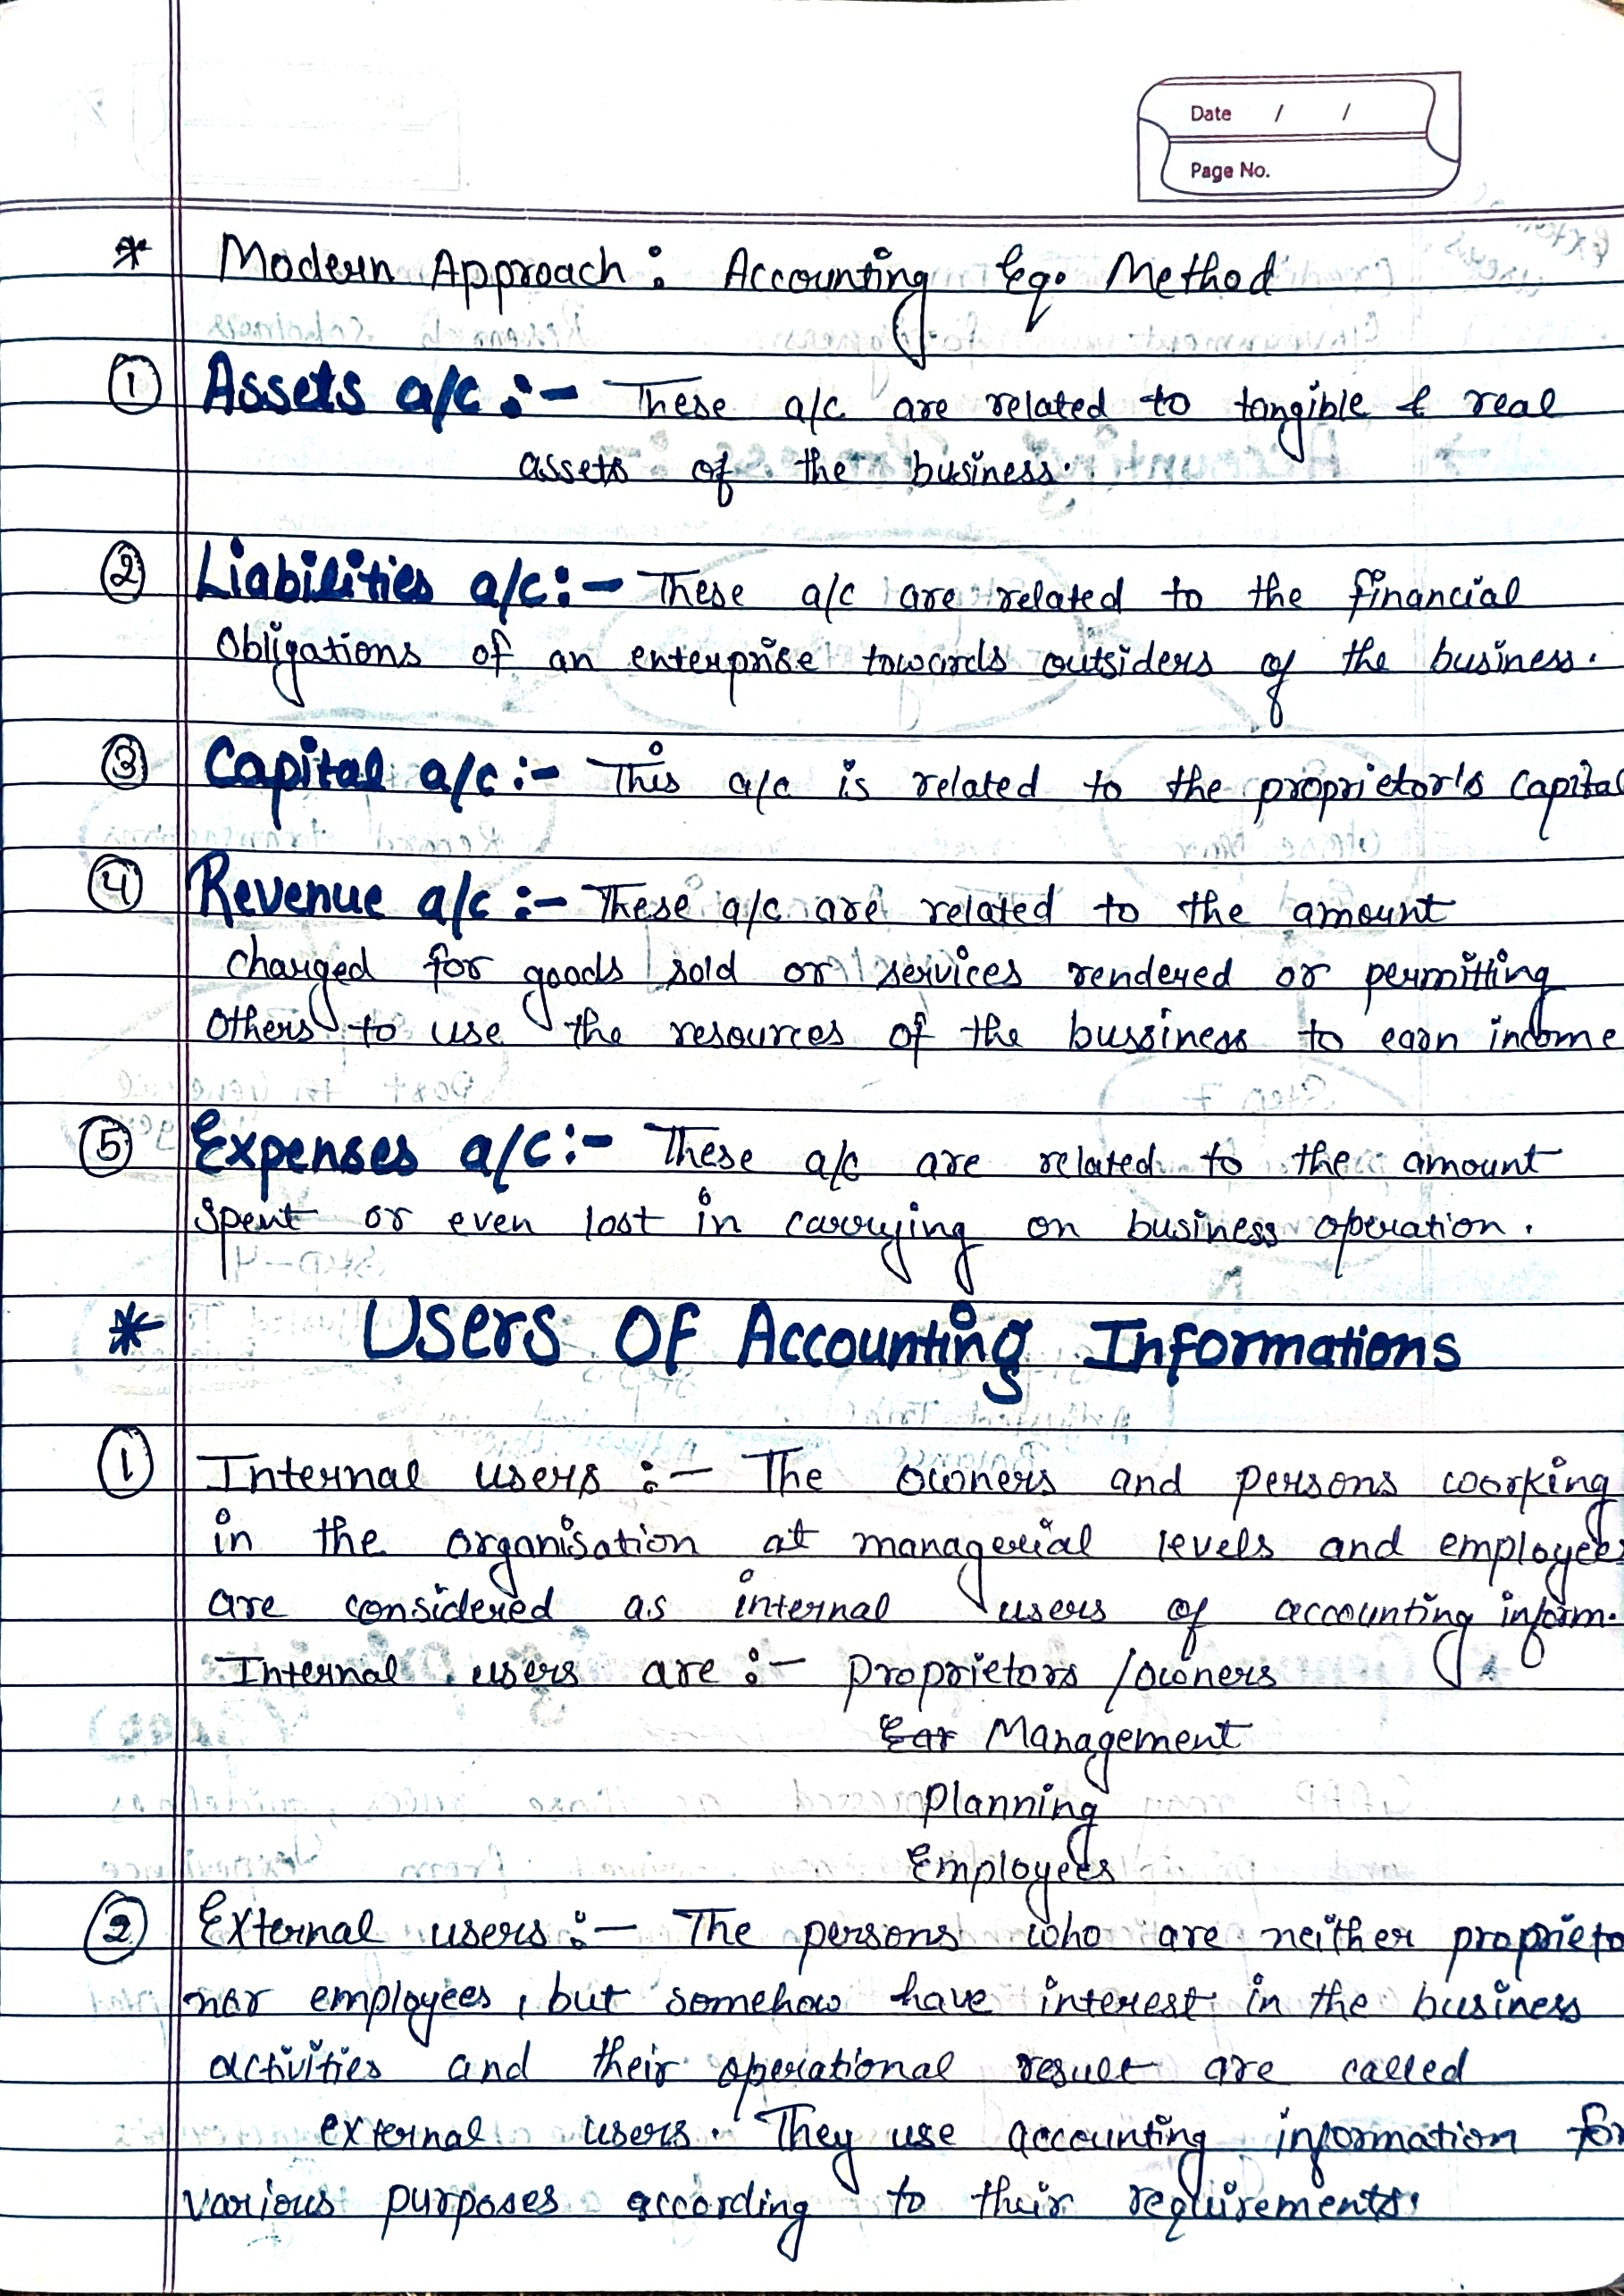 Date / /
Page No.
* Modern Approach : Accounting Eq. Method
① Assets a/c :- These a/c are related to tangible & real
assets of the business.
② Liabilities a/c :- These a/c are related to the financial
obligations of an enterprise towards outsiders of the business.
③ Capital a/c :- This a/c is related to the proprietor's capital
④ Revenue a/c :- These a/c are related to the amount
charged for goods sold or services rendered or permitting
others to use the resources of the bussiness to earn income
⑤ Expenses a/c :- These a/c are related to the amount
spent or even lost in carrying on business operation.
* Users Of Accounting Informations
① Internal users :- The owners and persons woorking
in the organisation at managerial levels and employees
are considered as internal users of accounting inform.
Internal users are :- proprietors / owners
Management
planning
Employees
② External users :- The persons who are neither proprieto
nor employees, but somehow have interest in the business
activities and their operational result are called
external users. They use accounting information for
various purposes according to their requirements.